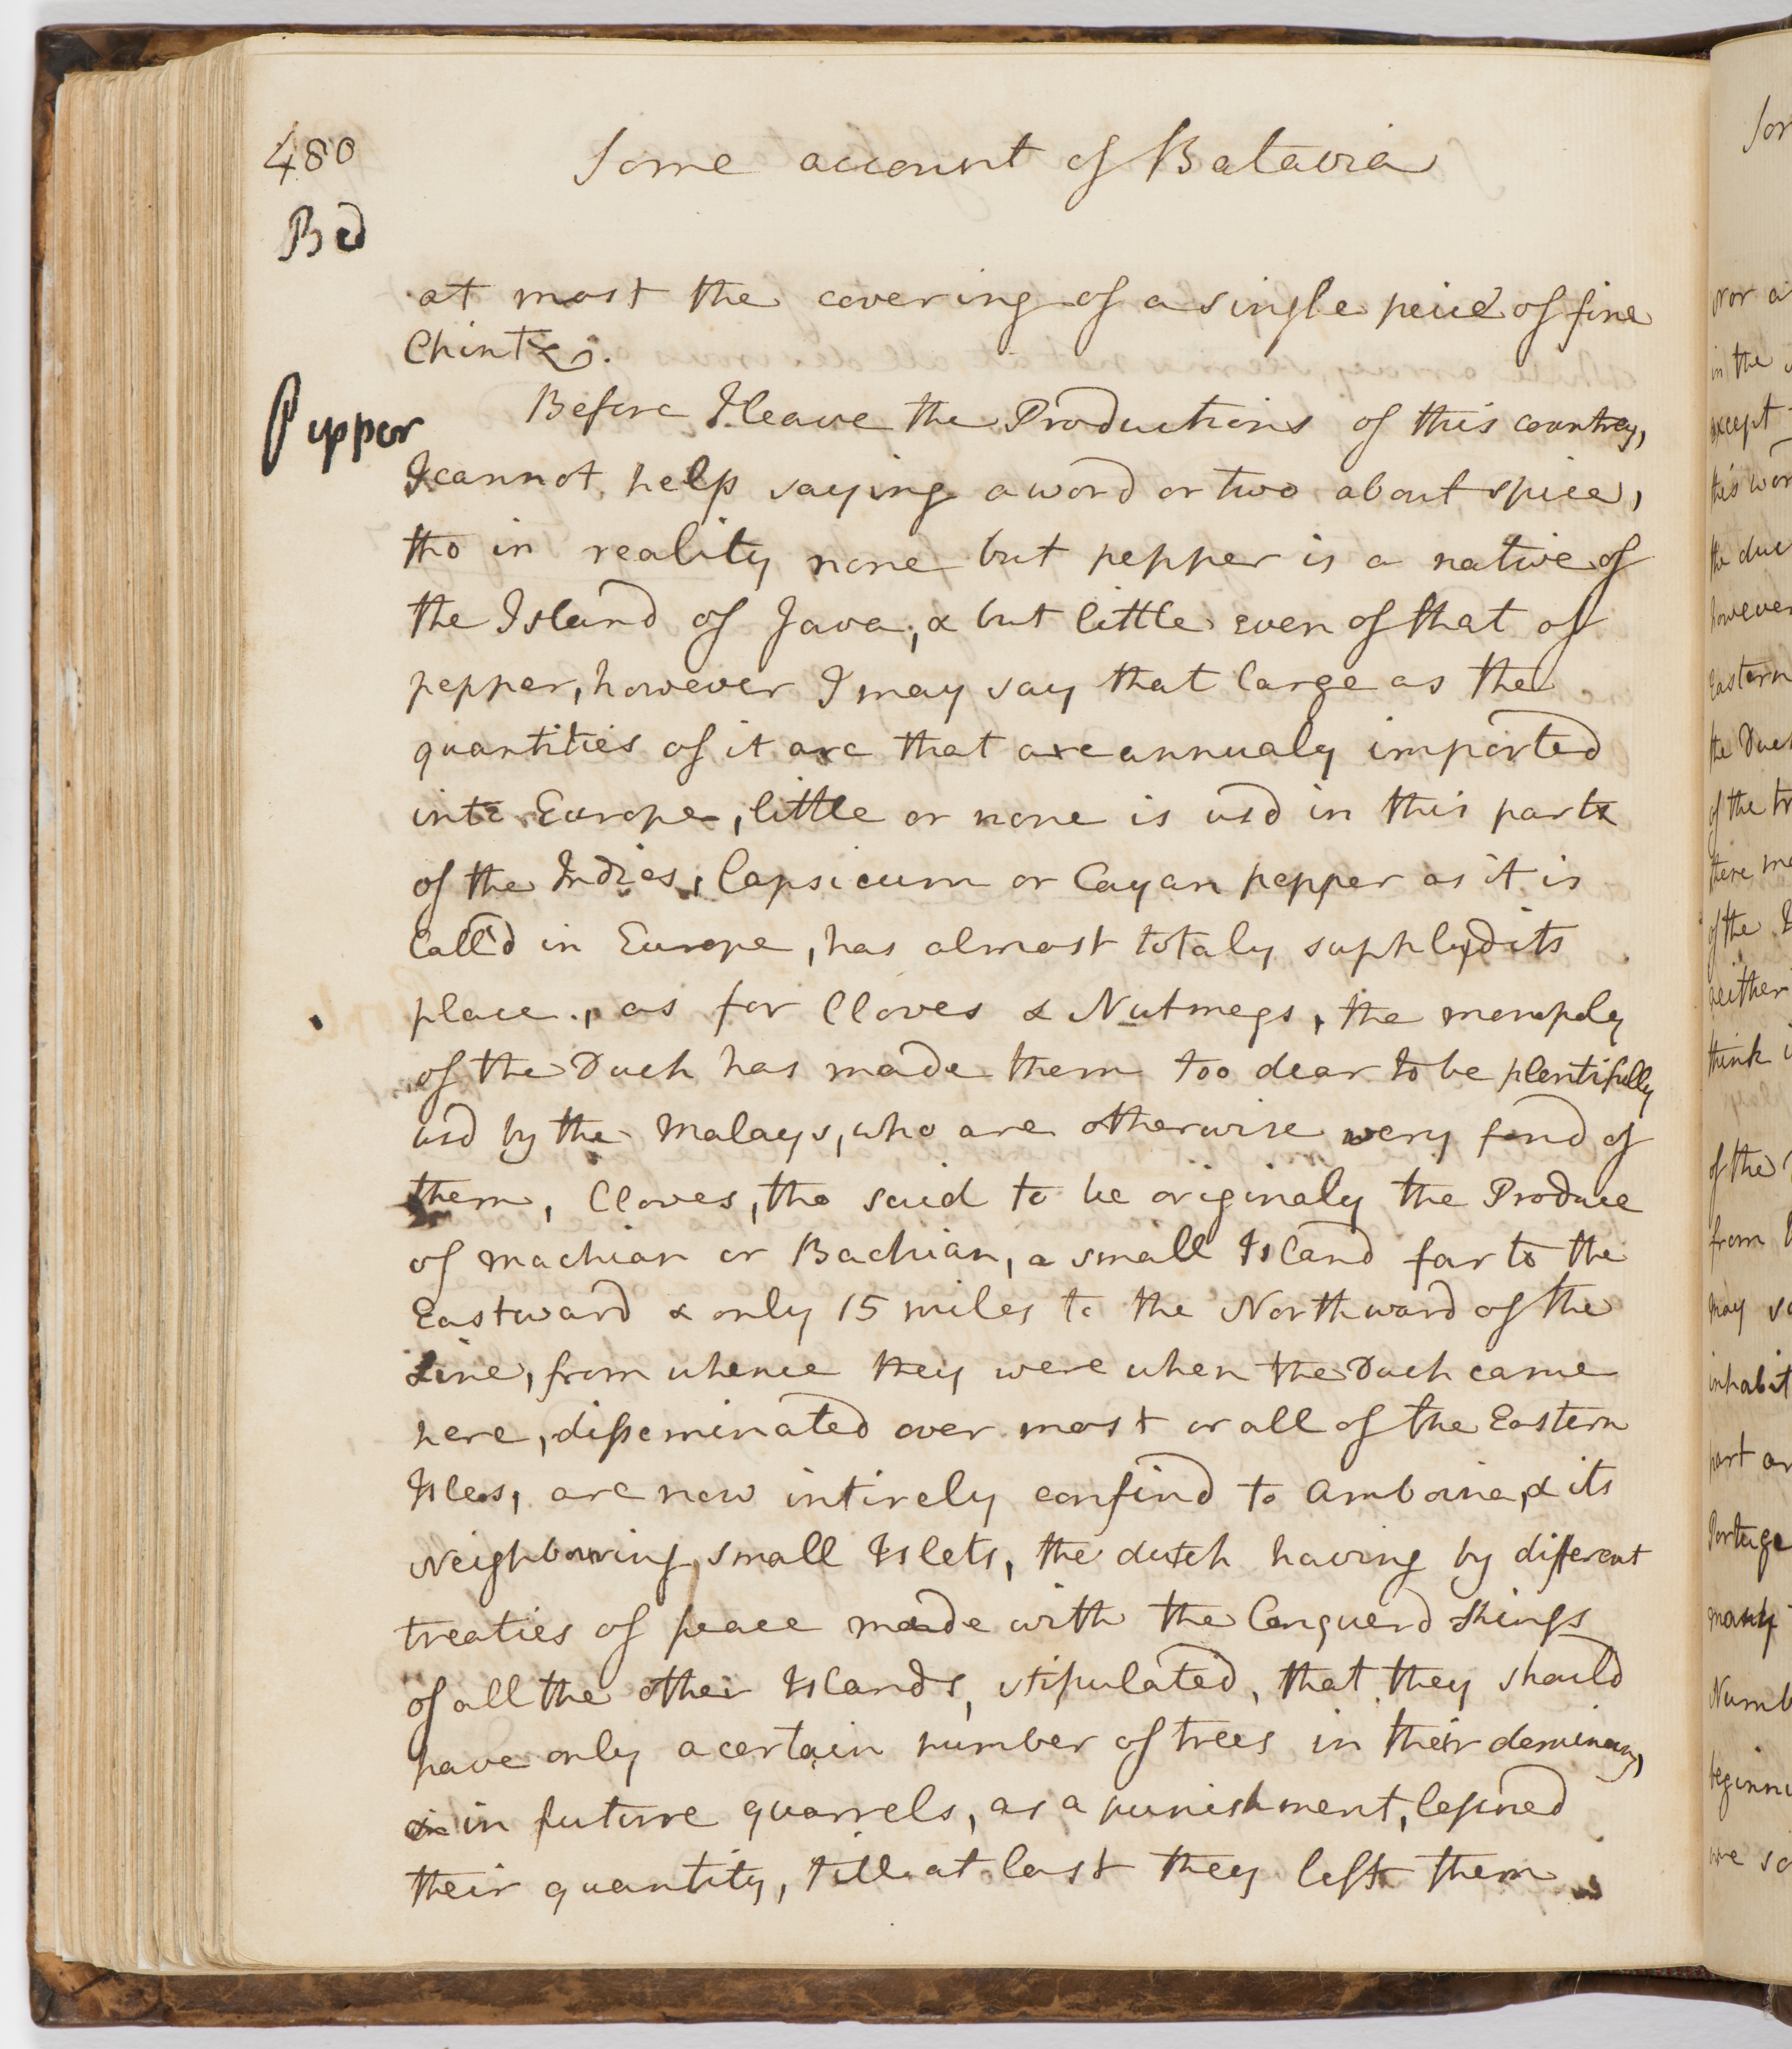 480
Some account of Batavia
Bed
at most the covering of a single peice of fine
Chintz.
Pepper
Before I leave the Productions of this countrey,
I cannot help saying a word or two about spice,
tho in reality none but pepper is a native of
the Island of Java, & but little even of that of
pepper, however I may say that large as the
quantities of it are that are annualy imported
into Europe, little or none is usd in this part
of the Indies, Capsicum or Cayan pepper as it is
Call'd in Europe, has almost totaly supplyd its
place, as for Cloves & Nutmegs, the monoply
of the Duch has made them too dear to be plentifully
usd by the Malays, who are otherwise very fond of
them, Cloves, tho said to be originaly the Produce
of Machian or Bachian, a small Island far to the
Eastward & only 15 miles to the Northward of the
Line, from whence they were when the Duch came
here, disseminated over most or all of the Eastern
Isles, are now intirely confind to Amboina, & its
Neighbouring small Islets, the dutch having by different
treaties of peace made with the Conquerd Kings
of all the other Islands, stipulated, that they should
have only a certain number of trees in their
in future quarrels, as a punishment, lessned
their quantity, till at last they left them